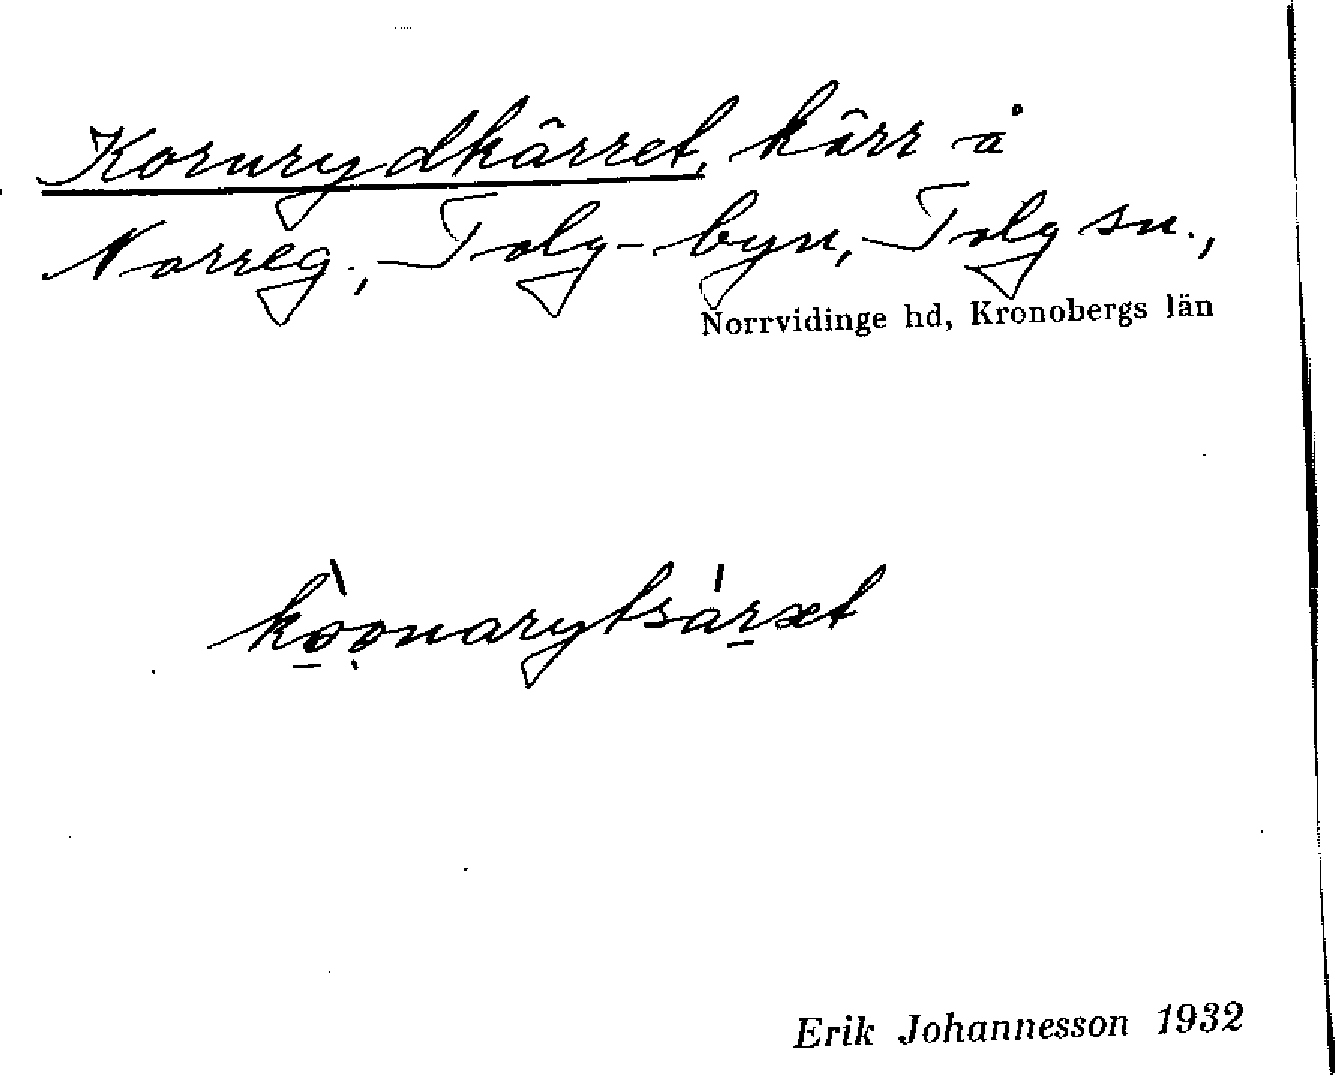 Kornrydkärret, kärr å
Norreg., Tolg-byn, Tolg sn.,
Norrvidinge hd, Kronobergs län
Erik Johannesson 1932